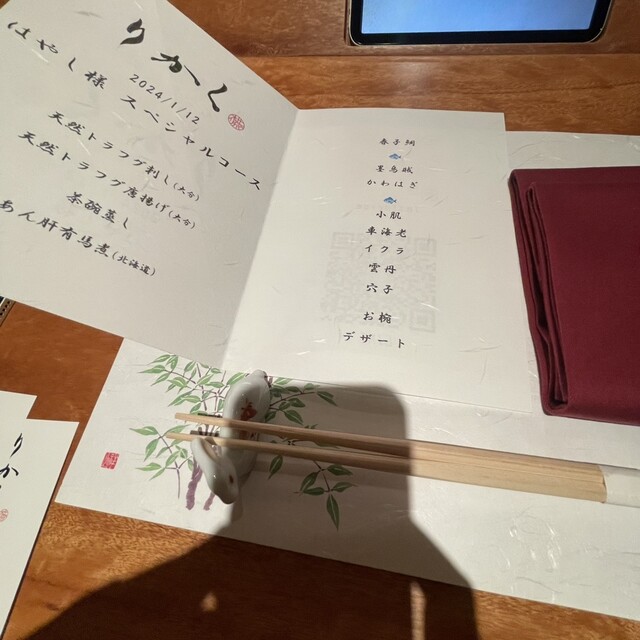 りかく
はやし様
2024/1/12
スペシャルコース
天然トラフグ刺し(大分)
天然トラフグ唐揚げ(大分)
茶碗蒸し
あん肝有馬煮(北海道)
春子鯛
墨烏賊
かわはぎ
小肌
車海老
イクラ
雲丹
穴子
お椀
デザート
りか